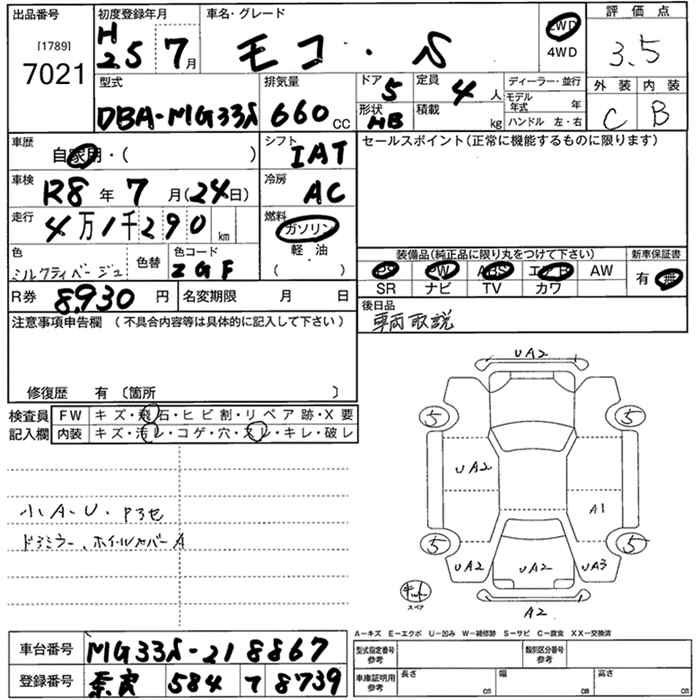 出品番号 初度登録年月 車名・グレード 評価点
[1789] 7021
H25 7月 モコ・S 2WD 4WD 3.5
型式 排気量 ドア 5 定員 4人 ディーラー・並行 外装 内装
DBA-MG33S 660cc 形状 HB 積載 kg モデル年式 年 C B
ハンドル 左・右
車歴 自家用・( ) シフト IAT セールスポイント(正常に機能するものに限ります)
車検 R8年 7月(24日) 冷房 AC
走行 4万1千290km 燃料 ガソリン
軽・油
( )
色 シルクティベージュ 色替 色コード ZGF
装備品(純正品に限り丸をつけて下さい) 新車保証書
PS PW ABS エアB AW 有・無
SR ナビ TV カワ
R券 8,930円 名変期限 月 日
後日品
車両取説
注意事項申告欄 (不具合内容等は具体的に記入して下さい)
修復歴 有〔箇所 〕
検査員記入欄 FW キズ・飛石・ヒビ割・リペア跡・X要
内装 キズ・汚レ・コゲ・穴・スレ・キレ・破レ
小A・U・
ドアミラー、ホイルカバーA
UA2
5 5
UA2
A1
5 5
UA2 UA2 UA3
スペア
A2
A－キズ E－エクボ U－凹み W－補修跡 S－サビ C－腐食 XX－交換済
車台番号 MG33S-218867
登録番号 奈良 584 8739
型式指定番号 参考 類別区分番号 参考
車庫証明用 参考 長さ cm 幅 cm 高さ cm